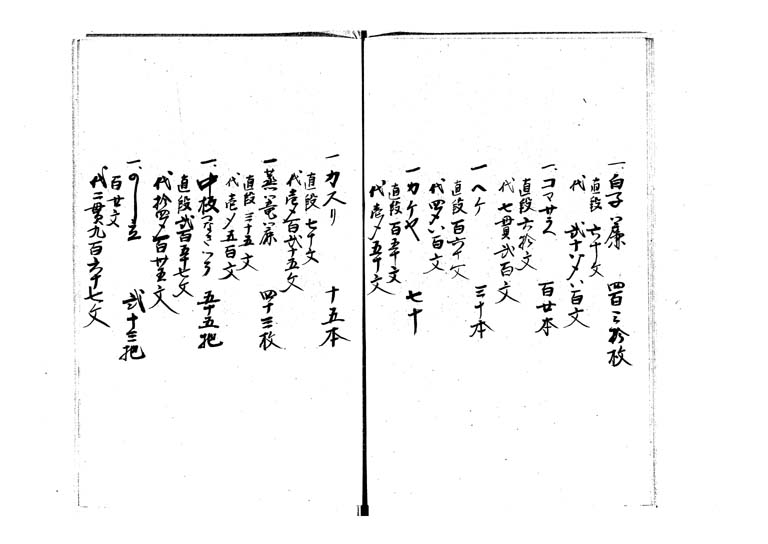 一、白子簾 四百三拾枚
直段 六十文
代 弐十〆八百文
一、コマサラヘ 百廿本
直段六拾文
代 七貫弐百文
一 ヘケ 三十本
直段百六十文
代四〆八百文
一 カケヤ 七十
直段百五十文
代壱〆五十文
一 カスリ 十五本
直段 七十文
代壱〆百弐十五文
一 蒸篭簾 四十三枚
直段三十五文
代壱〆五百文
一、中板 五十五把
直段弐百五十七文
代拾四〆百廿五文
一、のし 弐十三把
百廿文
代二貫九百六十七文